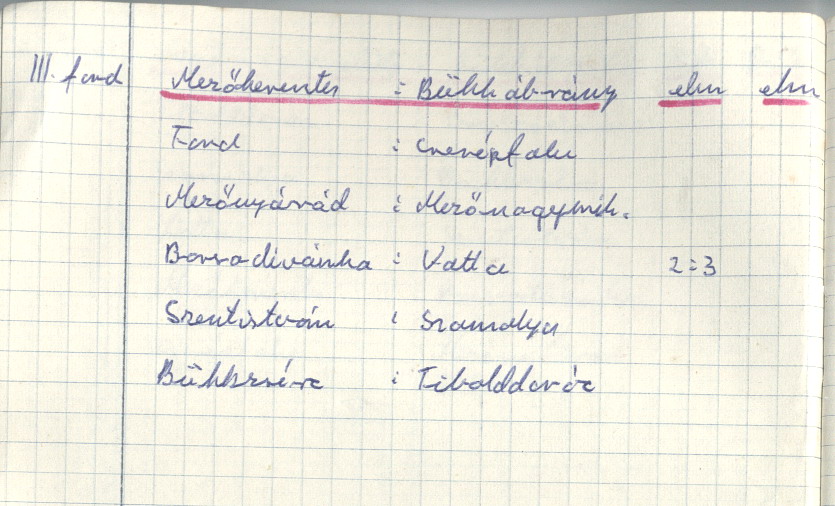 III. ford Mezőkeresztes : Bükkábrány elm elm
Tard : Cserépfalu
Mezőnyárád : Mezőnagymih.
Borsodivánka : Vatta 2:3
Szentistván : Szomolya
Bükkzsérc : Tibolddaróc